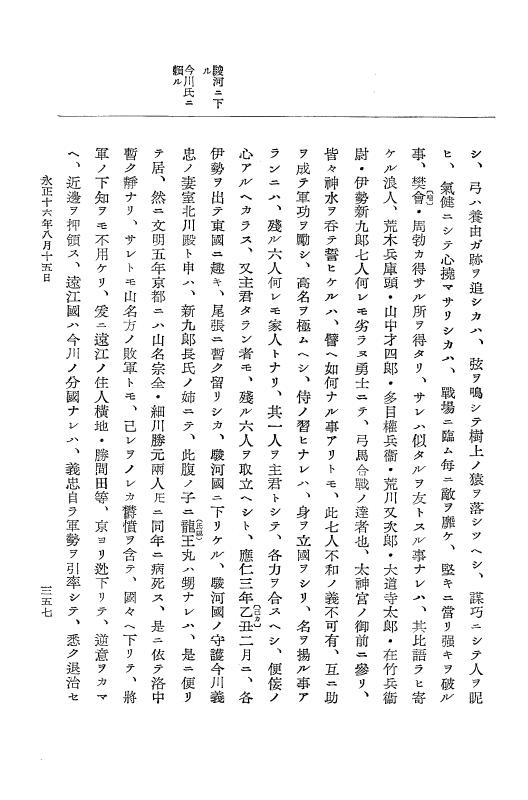 駿河ニ下
ル
今川氏ニ
頼ル
シ、弓ハ養由ガ跡ヲ追シカハ、弦ヲ鳴シテ樹上ノ猿ヲ落シツヘシ、謀巧ニシテ人ヲ昵
ヒ、氣健ニシテ心撓マサリシカハ、戰場ニ臨ム毎ニ敵ヲ靡ケ、堅キニ當リ强キヲ破ル
事、樊會・周勃カ得サル所ヲ得タリ、サレハ似タルヲ友トスル事ナレハ、其比語ラヒ寄
ケル浪人、荒木兵庫頭・山中才四郎・多目權兵衞・荒川又次郎・大道寺太郎・在竹兵衞
尉・伊勢新九郎七人何レモ劣ラヌ勇士ニテ、弓馬合戰ノ達者也、太神宮ノ御前ニ參リ、
皆々神水ヲ呑テ誓ヒケルハ、譬ヘ如何ナル事アリトモ、此七人不和ノ義不可有、互ニ助
ヲ成テ軍功ヲ勵シ、高名ヲ極ムヘシ、侍ノ習ヒナレハ、身ヲ立國ヲシリ、名ヲ揚ル事ア
ランニハ、殘ル六人何レモ家人トナリ、其一人ヲ主君トシテ、各力ヲ合スヘシ、便侫ノ
心アルヘカラス、又主君タラン者モ、殘ル六人ヲ取立ヘシト、應仁三年乙丑(己カ)二月ニ、各
伊勢ヲ出テ東國ニ趣キ、尾張ニ暫ク留リシカ、駿河國ニ下リケル、駿河國ノ守護今川義
忠ノ妻室北川殿ト申ハ、新九郎長氏ノ姉ニテ、此腹ノ子ニ龍王丸(氏親)ハ甥ナレハ、是ニ便リ
テ居、然ニ文明五年京都ニハ山名宗全・細川勝元兩人圧ニ同年ニ病死ス、是ニ依テ洛中
暫ク靜ナリ、サレトモ山名方ノ敗軍トモ、己レヲノレカ鬱憤ヲ含テ、國々ヘ下リテ、將
軍ノ下知ヲモ不用ケリ、爰ニ遠江ノ住人横地・勝間田等、京ヨリ迯下リテ、逆意ヲカマ
ヘ、近邊ヲ押領ス、遠江國ハ今川ノ分國ナレハ、義忠自ラ軍勢ヲ引率シテ、悉ク退治セ
永正十六年八月十五日
三五七